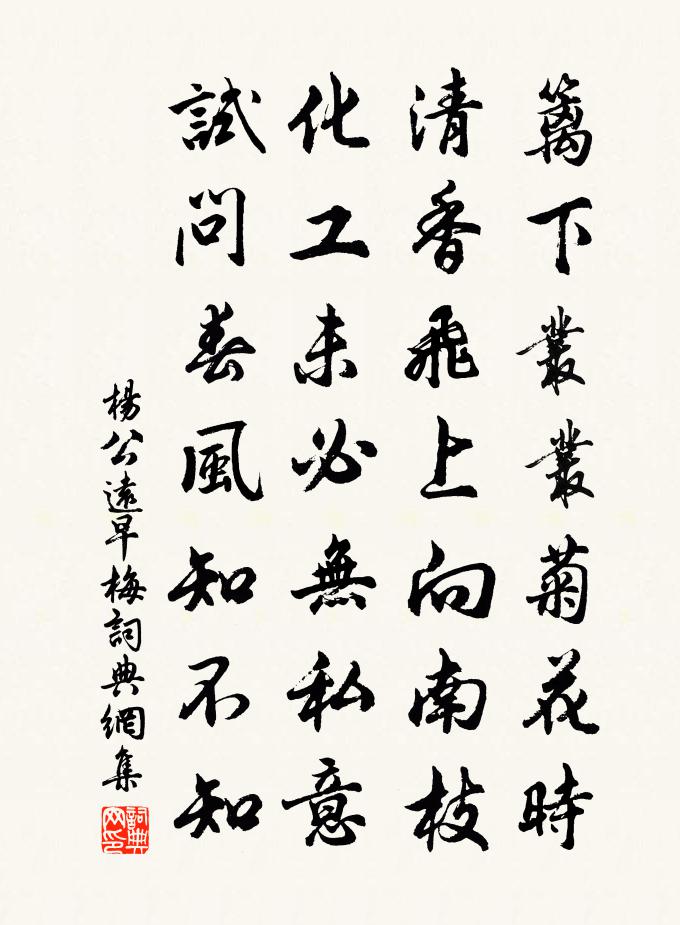 籬下叢叢菊花時
清香飛上向南枝
化工未必無私意
試問春風知不知
楊公遠早梅詞典網集
詞典网印